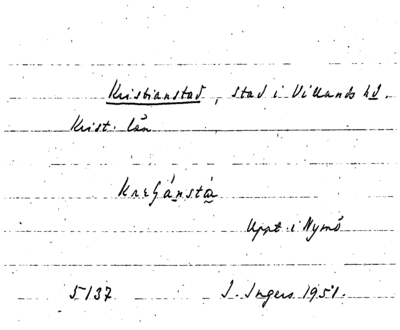 Kristianstad, stad i Villands hd.
Krist. län
Uppt. i Nymö
5137 I. Ingers 1951.